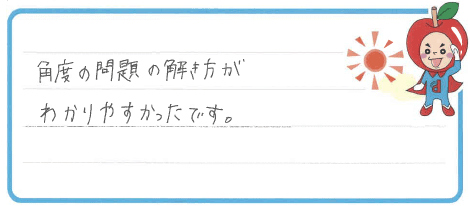 角度の問題の解き方が
わかりやすかったです。
d